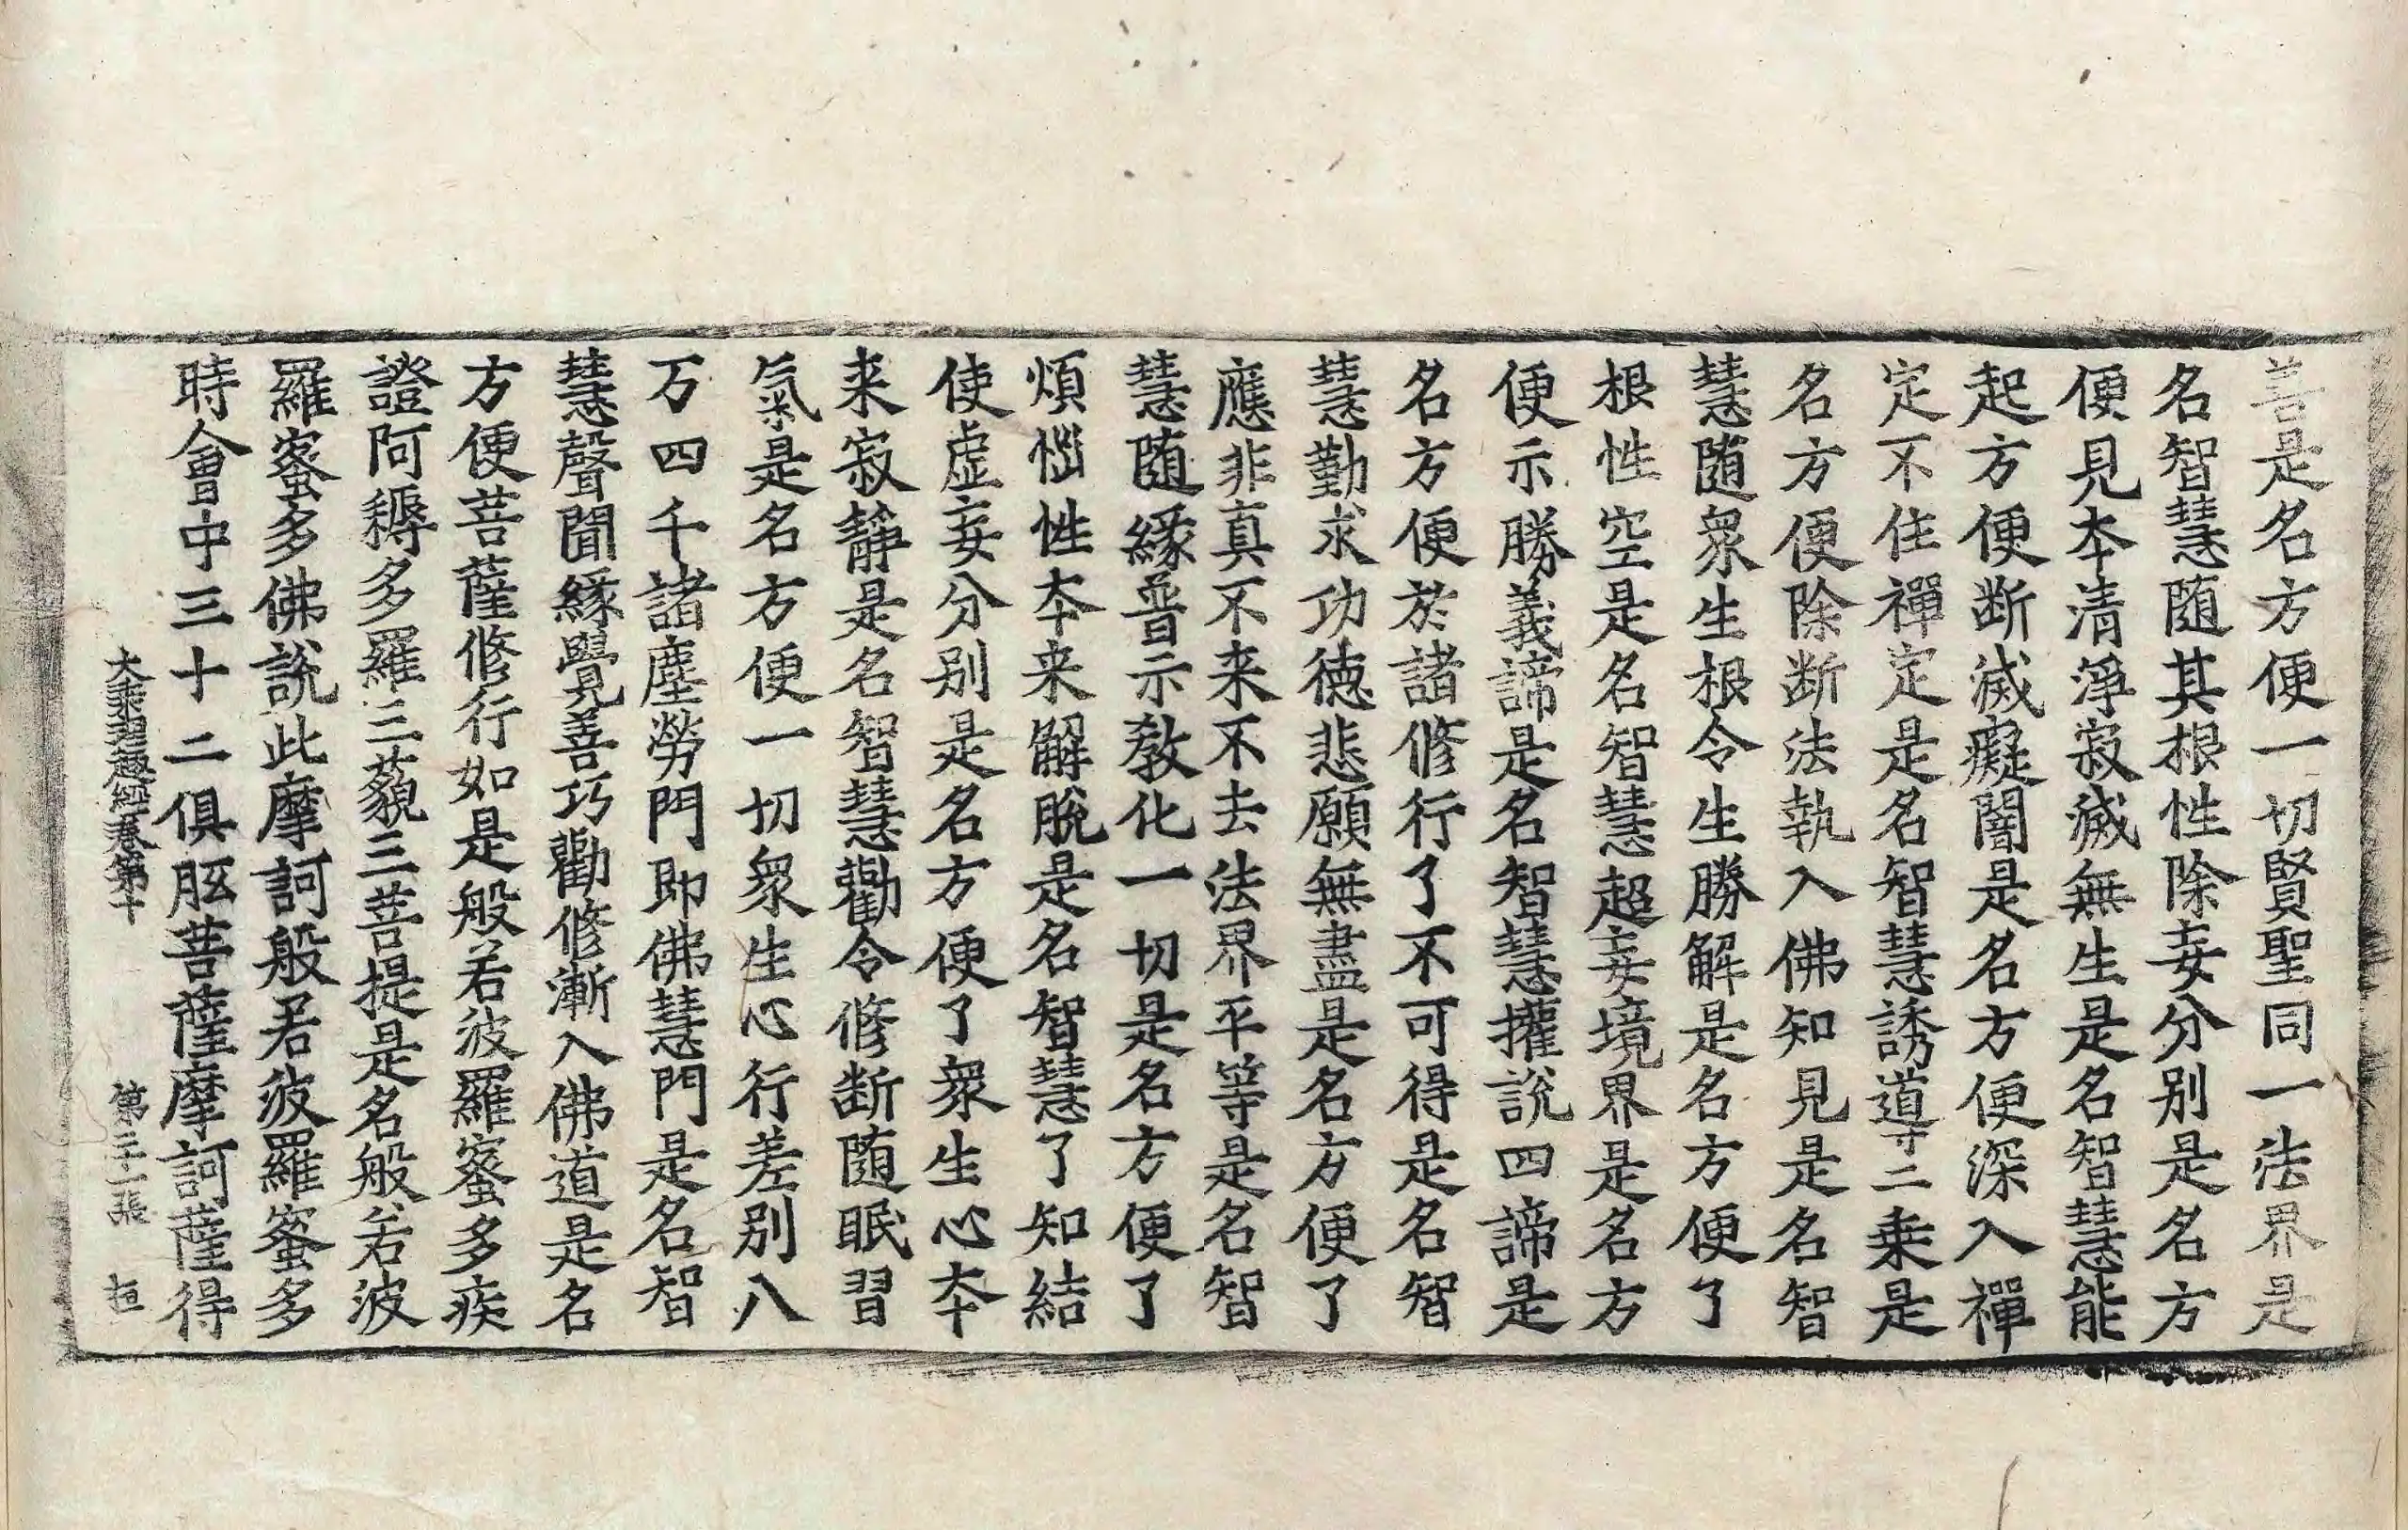 善是名方便一切賢聖同一法界是
名智慧随其根性除妄分别是名方
便見本清淨寂滅無生是名智慧能
起方便断滅癡闇是名方便深入禪
定不住禪定是名智慧誘導二乗是
名方便除断法執入佛知見是名智
慧随衆生根令生勝解是名方便了
根性空是名智慧超妄境界是名方
便示勝義諦是名智慧權說四諦是
名方便於諸修行了不可得是名智
慧勤求功德悲願無盡是名方便了
應非真不来不去法界平等是名智
慧随緣普示教化一切是名方便了
煩惱性本来解脫是名智慧了知結
使虛妄分别是名方便了衆生心本
来寂靜是名智慧勸令修断随眠習
氣是名方便一切衆生心行差别八
万四千諸塵勞門即佛慧門是名智
慧聲聞緣覺善巧勸修漸入佛道是名
方便菩薩修行如是般若波羅蜜多疾
證阿耨多羅三藐三菩提是名般若波
羅蜜多佛說此摩訶般若波羅蜜多
時會中三十二俱胝菩薩摩訶薩得
大乘理趣經卷第十 第二十一張 桓